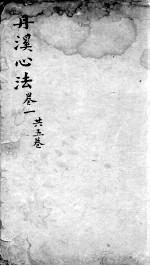 丹溪心法卷一共五卷